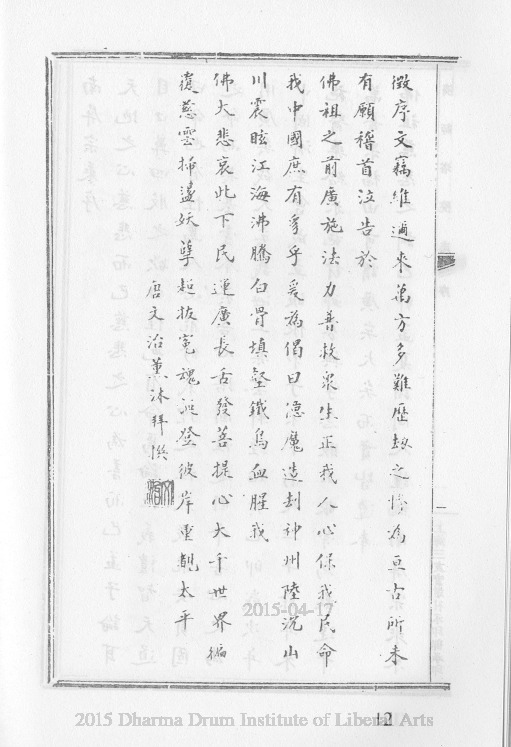 徵序文竊維邇來萬方多難歷劫之慘為亘古所未
有願稽首泣告於
佛祖之前廣施法力普救衆生正我人心保我民命
我中國庶有豸乎爰為偈曰 魔造刦神州陸沉山
川震眩江海沸騰白骨填壑鐵鳥血腥我
佛大悲哀此下民運廣長舌發菩提心大千世界徧
覆慈雲掃盪妖孽超拔冤魂誕登彼岸重覩太平
唐文治薰沐拜譔
2015-04-17
12
2015 Dharma Drum Institute of Liberal Arts